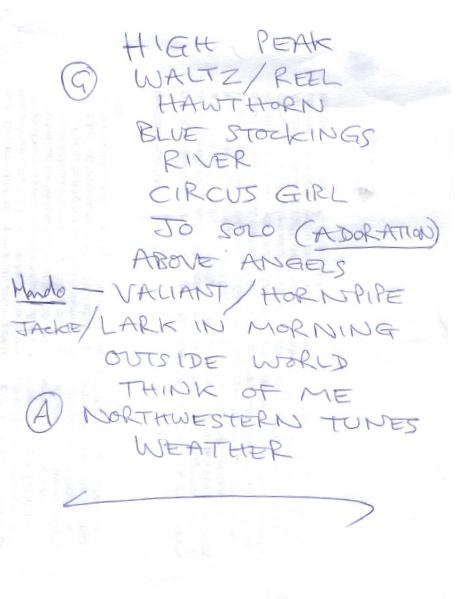 HIGH PEAK
G WALTZ/REEL
HAWTHORN
BLUE STOCKINGS
RIVER
CIRCUS GIRL
JO SOLO (ADORATION)
ABOVE ANGELS
Mando — VALIANT/HORNPIPE
JACKIE/LARK IN MORNING
OUTSIDE WORLD
THINK OF ME
A NORTHWESTERN TUNES
WEATHER